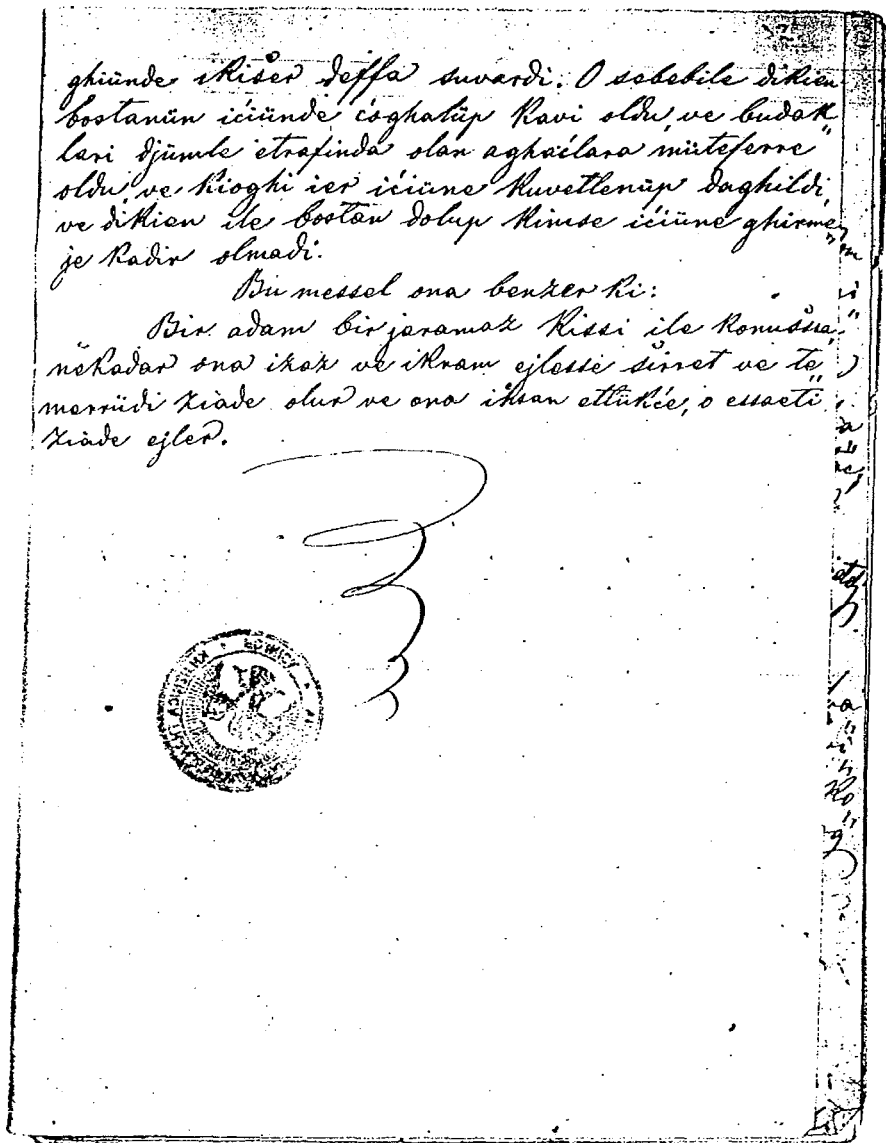 ghiünde ikišer deffa suvardi. O sebebile dikien
bostanün ićiünde ćoghalüp kavi oldu ve budak
lari djümle etrafinda olan aghaćlara müteferre"
oldu ve kioghi ier ićiüne kuvetlenüp daghildi,
ve dikien ile bostan dolup kimse ićiüne ghirme„
je kadir olmadi.
Bu messel ona benzer ki:
Bir adam bir jaramaz kissi ile konušsa„
nekadar ona izaz ve ikram ejlesse širret ve te„
merrüdi ziade olur ve ona ihsan ettükće, o essaeti
ziade ejler.